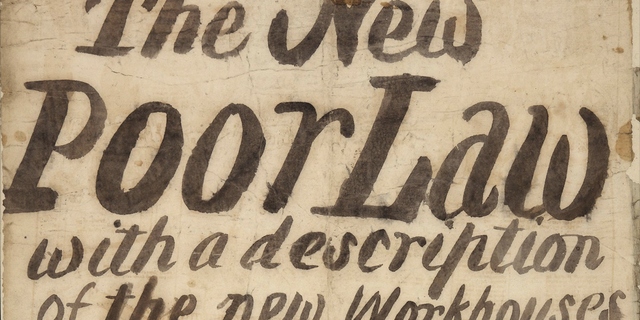 The New
Poor Law
with a description
of the new Workhouses